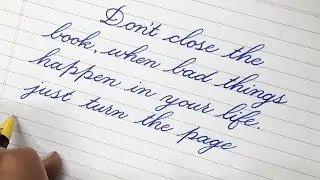 Don't close the
book, when bad things
happen in your life.
just turn the page